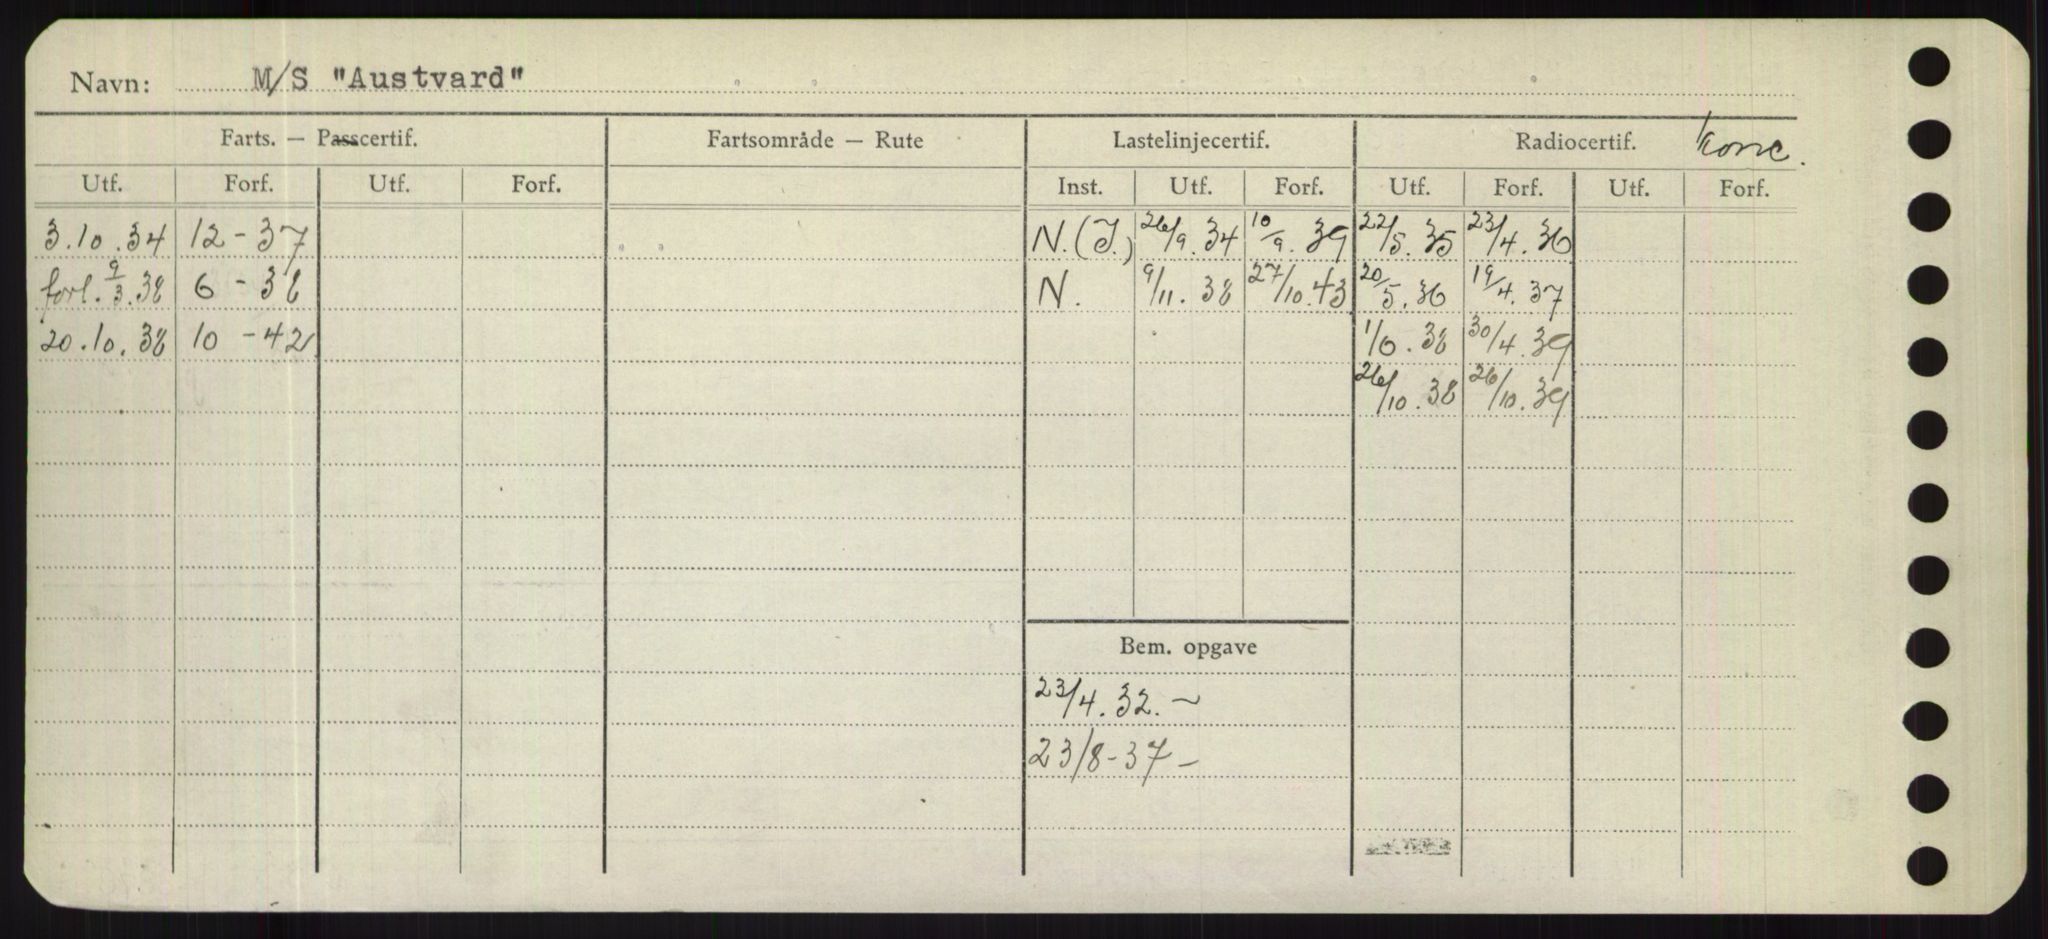 Navn: M/S "Austvard"
Farts. — Passcertif. Fartsområde — Rute Lastelinjecertif. Radiocertif.
Utf. Forf. Utf. Forf. Inst. Utf. Forf. Utf. Forf. Utf. Forf.
3.10.34 12-37 N.(I.) 26/9.34 10/9.39 22/5.35 23/4.36
forl. 9/3.38 6-38 N. 9/11.38 27/10.43 20/5.36 19/4.37
20.10.38 10-42 1/6.38 30/4.39
26/10.38 26/10.39
Bem. opgave
23/4.32.–
23/8-37–